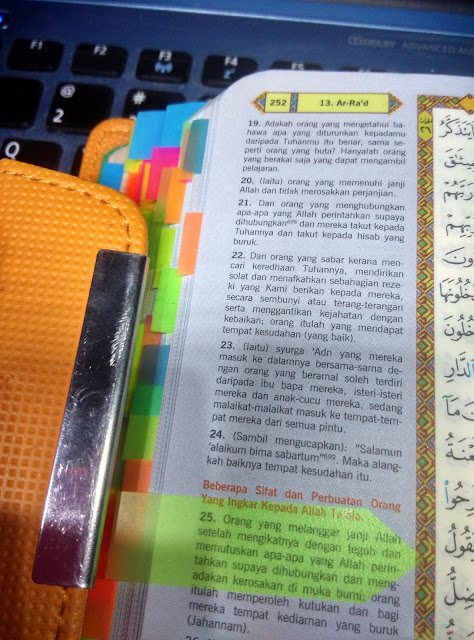 F1
F2
F3
F4
DOLBY ADVANCED AU
@
2
#
252
13. Ar-Ra'd
19. Adakah orang yang mengetahui ba-
hawa apa yang diturunkan kepadamu
daripada Tuhanmu itu benar, sama se-
perti orang yang buta? Hanyalah orang
yang berakal saja yang dapat mengambil
pelajaran.
20. (Iaitu) orang yang memenuhi janji
Allah dan tidak merosakkan perjanjian.
21. Dan orang yang menghubungkan
apa-apa yang Allah perintahkan supaya
dihubungkan⁶⁹⁸ dan mereka takut kepada
Tuhannya dan takut kepada hisab yang
buruk.
22. Dan orang yang sabar kerana men-
cari keredhaan Tuhannya, mendirikan
solat dan menafkahkan sebahagian reze-
ki yang Kami berikan kepada mereka,
secara sembunyi atau terang-terangan
serta menggantikan kejahatan dengan
kebaikan; orang itulah yang mendapat
tempat kesudahan (yang baik).
23. (Iaitu) syurga 'Adn yang mereka
masuk ke dalamnya bersama-sama de-
ngan orang yang beramal soleh terdiri
daripada ibu bapa mereka, isteri-isteri
mereka dan anak-cucu mereka, sedang
malaikat-malaikat masuk ke tempat-tem-
pat mereka dari semua pintu.
24. (Sambil mengucapkan): "Salamun
'alaikum bima sabartum"⁶⁹⁹. Maka alang-
kah baiknya tempat kesudahan itu.
Beberapa Sifat dan Perbuatan Orang
Yang Ingkar Kepada Allah Ta'ala.
25. Orang yang melanggar janji Allah
setelah mengikatnya dengan teguh dan
memutuskan apa-apa yang Allah perin-
tahkan supaya dihubungkan dan meng-
adakan kerosakan di muka bumi; orang
itulah memperoleh kutukan dan bagi
mereka tempat kediaman yang buruk
(Jahannam).